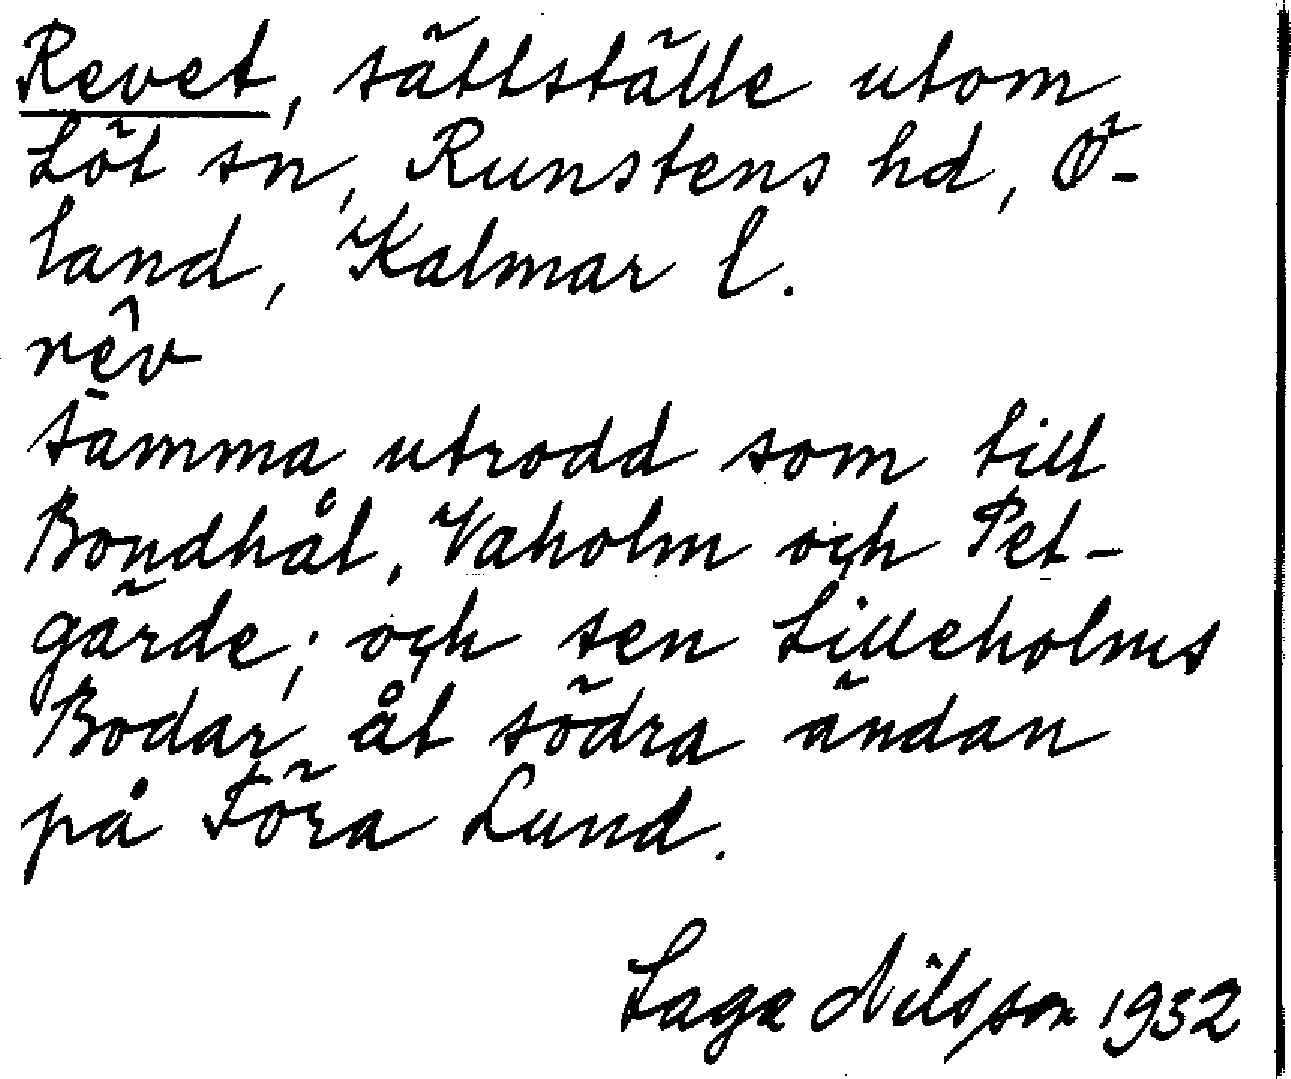 Revet, sättställe utom
Löt sn, Runstens hd, Ö-
land, Kalmar l.
rêv
samma utrodd som till
Bondhål, Vaholm och Pet-
gärde; och sen Lilleholms
Bodar åt södra ändan
på Föra Lund.
Saga Nilsson 1932